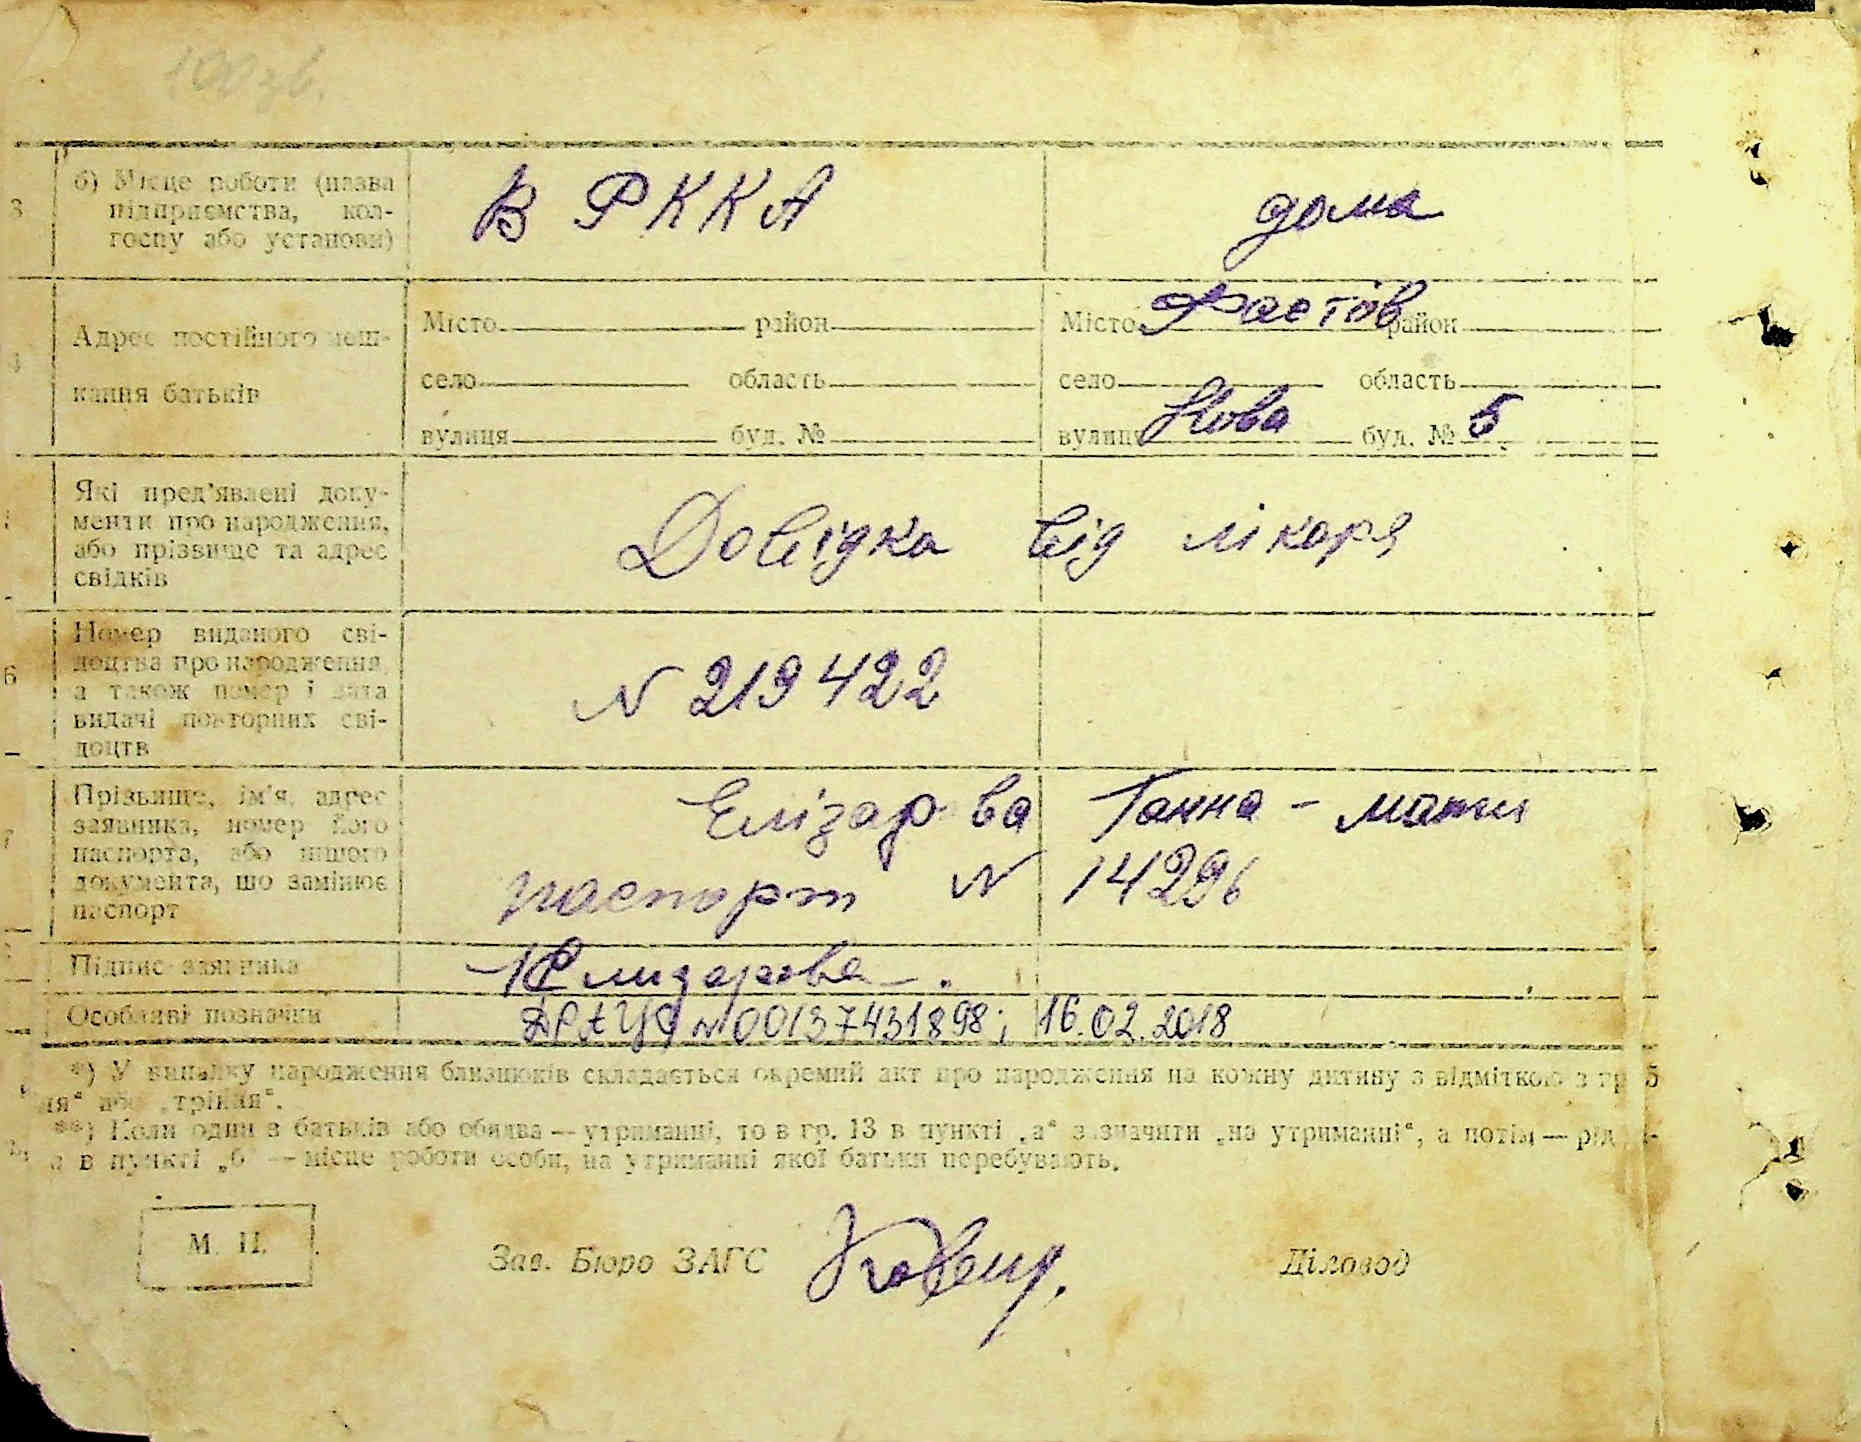 100 зв.
3 б) Місце роботи (назва В РККА дома
підприємства, кол-
госпу або установи)
Місто район Місто Фастів район
Адрес постійного меш-
село область село область
кання батьків
вулиця буд. № вулиця Нова буд. № 5
Які пред'явлені доку-
менти про народження, Довідка від лікаря
або прізвище та адрес
свідків
Номер виданого сві-
доцтва про народження,
6 а також номер і дата N 219422
видачі повторних сві-
доцтв
Прізвище, ім'я, адрес Елізарова Ганна - мати
заявника, номер його
7 паспорта, або іншого паспорт N 14296
документа, що замінює
паспорт
Підпис заявника Елизарова.
Особливі позначки ДРАЦС N 00137431898; 16.02.2018
*) У випадку народження близнюків складається окремий акт про народження на кожну дитину з відміткою з гр. 5
"трійня".
**) Коли один з батьків або обидва — утриманці, то в гр. 13 в пункті „а“ зазначити „на утриманні“, а потім — рід
а в пункті „б“ — місце роботи особи, на утриманні якої батьки перебувають.
М. П. Зав. Бюро ЗАГС Діловод